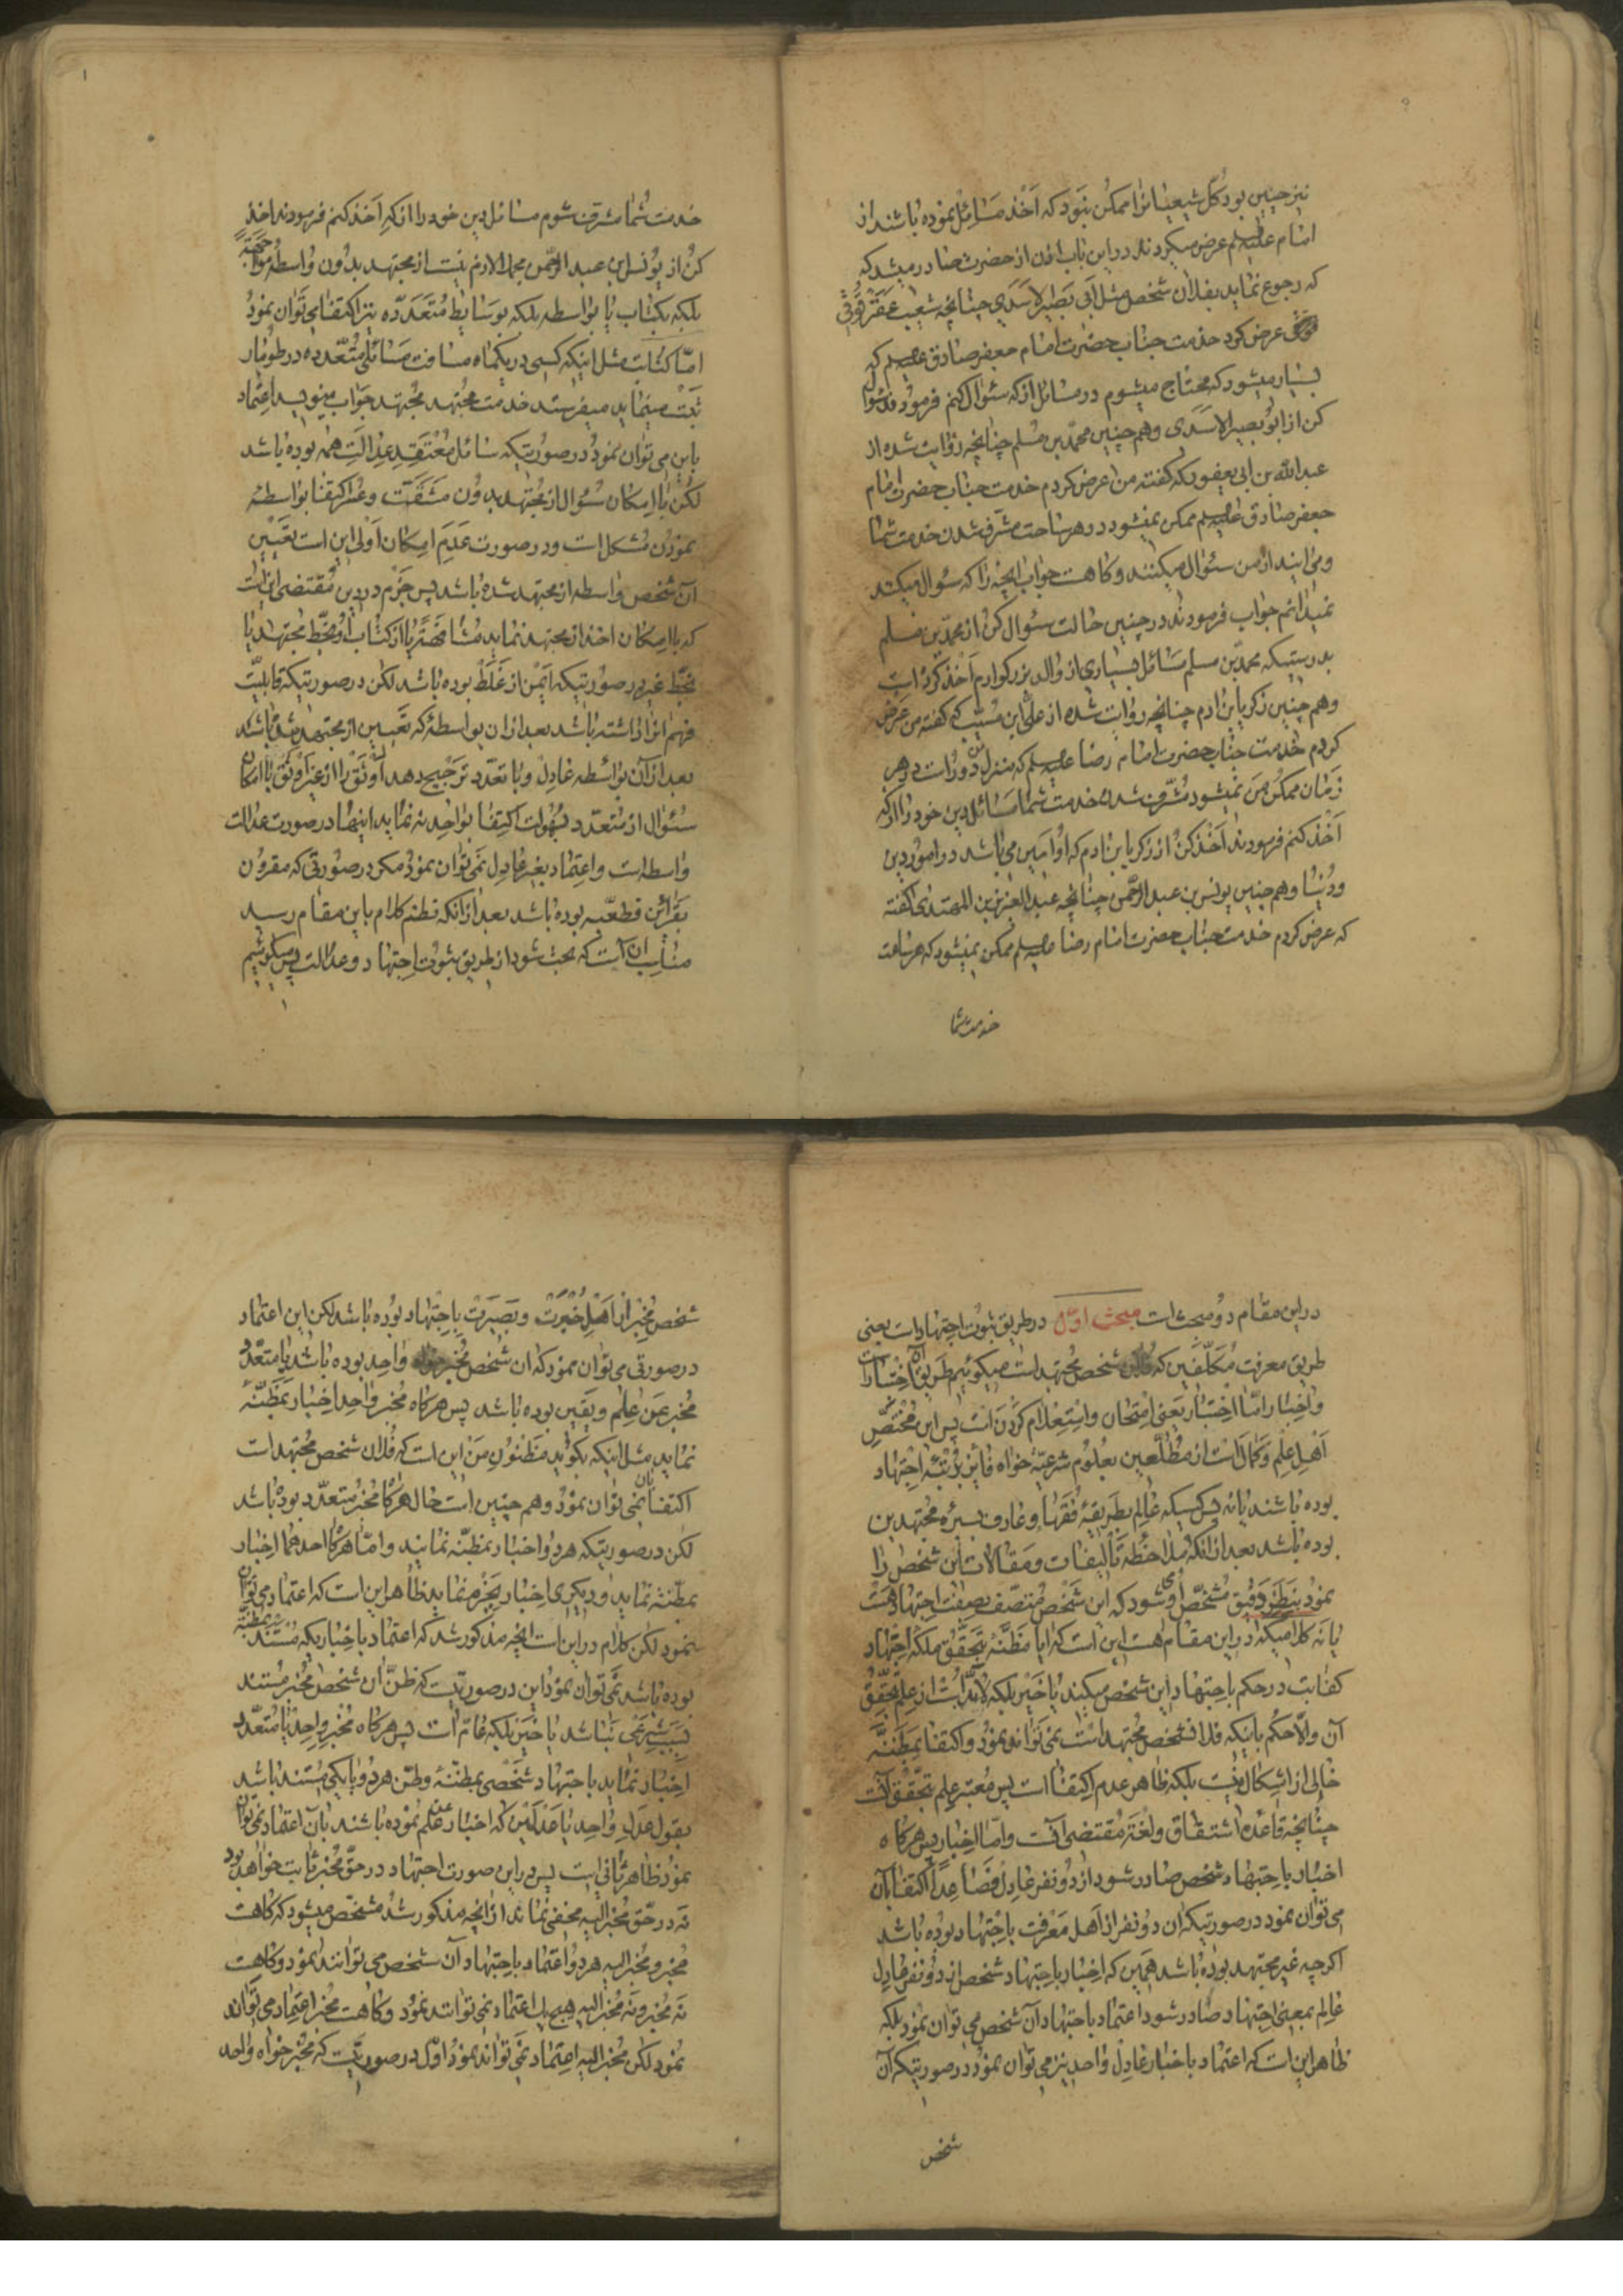 نیز چنین بود کل شیعیانرا ممکن نبود که اخذ مسائل نموده باشند از
امام علیه السلم عرض میکردند در این باب اذن از حضرت صادر میشد که
که رجوع نماید بفلان شخص مثل ابی بصیر الاسدی چنانچه شعیب عقرقوفی
عرض کرد خدمت جناب حضرت امام جعفر صادق علیه السلم که
بسیار میشود که محتاج میشوم در مسائل از که سئوال کنم فرمودند سئوال
کن از ابو بصیر الاسدی وهم چنین محمد بن مسلم چنانچه روایت شده از
عبد الله بن ابی یعفور که گفته من عرض کردم خدمت جناب حضرت امام
جعفر صادق علیه السلم ممکن نمیشود در هر ساعت مشرف شدن خدمت شما
ومی ایند از من سئوال میکنند وگاهست جواب انچه را که سئوال میکنند
نمیدانم جواب فرمودند در چنین حالت سئوال کن از محمد بن مسلم
بدرستیکه محمد بن مسلم مسائل بسیاری از والد بزرکوارم اخذ کرده است
وهم چنین زکریا بن ادم چنانچه روایت شده از علی ابن مسیب که گفته من عرض
کردم خدمت جناب حضرت امام رضا علیه السلم که منزل من دور است در هر
زمان ممکن من نمیشود مشرف شدن خدمت شما مسائل دین خود را از که
اخذ کنم فرمودند اخذ کن از زکریا بن ادم که او امین می باشد در امور دین
ودنیا وهم چنین یونس بن عبد الرحمن چنانچه عبد العزیز بن المهتدی گفته
که عرض کردم خدمت جناب حضرت امام رضا علیه السلم ممکن نمیشود که هر ساعت
خدمت شما
خدمت شما مشرف شوم مسائل دین خود را از که اخذ کنم فرمودند اخذ
کن از یونس بن عبد الرحمن مجملا لازم نیست از مجتهد بدون واسطه مواجهة
بلکه بکتاب یا بواسطه بلکه بوسایط متعدده نیز اکتفا می توان نمود
اما کتابت مثل اینکه کسی در یکماه مسافت مسائل متعدده در طومار
ثبت مینماید میفرستد خدمت مجتهد مجتهد جواب مینویسد اعتماد
باین می توان نمود در صورتیکه سائل معتقد عدالت همه بوده باشد
لکن با امکان سئوال از مجتهد بدون مشقت وعسر اکتفا بواسطه
نمودن مشکل است ودر صورت عدم امکان اولی این است تعیین
آن شخص واسطه از مجتهد شده باشد پس جزم در دین مقتضی انست
که با امکان اخذ از مجتهد نماید مشافهة یا از کتاب او بخط مجتهد یا
بخط غیر در صورتیکه ایمن از غلط بوده باشد لکن در صورتیکه قابلیت
فهم انرا داشته باشد بعد از ان بواسطهٔ که تعیین از مجتهد شده باشد
بعد از آن بواسطه عادل وبا تعدد ترجیح دهد اوثق را از غیر اوثق با امکان
سئوال از متعدد بسهولت اکتفا بواحد نه نماید اینها در صورت عدالت
واسطه است واعتماد بغیر عادل نمی توان نمود مکر در صورتی که مقرون
بقرائن قطعیه بوده باشد بعد از انکه نظم کلام باین مقام رسید
مناسب آن است که بحث شود از طریق ثبوت اجتهاد وعدالت پس میکوئیم
در این مقام دو مبحث است مبحث اول در طریق ثبوت اجتهاد است یعنی
طریق معرفت مکلفین که فلان شخص مجتهد است میکوئیم طریق آن اختبار است
واخبار اما اختبار یعنی امتحان واستعلام کردن است پس این مختص
اهل علم وکمال است از مطلعین بعلوم شرعیه خواه فایز برتبهٔ اجتهاد
بوده باشند یا نه پس کسیکه عالم بطریقهٔ فقها وعارف بسیرهٔ مجتهدین
بوده باشد بعد از انکه ملاحظه تألیفات ومقالات این شخص را
نمود بنظر دقیق مشخص او میشود که این شخص متصف بصفت اجتهاد هست
یا نه کلامیکه در این مقام هست این است که ایا مظنه بتحقق ملکه اجتهاد
کفایت در حکم باجتهاد این شخص میکند یا خیر بلکه لابد است از علم بتحقق
آن والا حکم باینکه فلان شخص مجتهد است نمی تواند نمود واکتفا بمظنه
خالی از اشکال نیست بلکه ظاهر عدم اکتفا است پس معتبر علم بتحقق انست
چنانچه قاعده اشتقاق ولغت مقتضی انست واما اخبار پس هر گاه
اخبار باجتهاد شخص صادر شود از دو نفر عادل فصاعدا اکتفا بآن
می توان نمود در صورتیکه ان دو نفر از اهل معرفت باجتهاد بوده باشد
اکرچه غیر مجتهد بوده باشد همین که اخبار باجتهاد شخص از دو نفر عادل
عالم بمعنی اجتهاد صادر شود اعتماد باجتهاد آن شخص می توان نمود بلکه
ظاهر این است که اعتماد باخبار عادل واحد نیز می توان نمود در صورتیکه آن
شخص
شخص مخبر از اهل خبرت وبصیرت باجتهاد بوده باشد لکن این اعتماد
در صورتی می توان نمود که ان شخص مخبر خواه واحد بوده باشد یا متعدد
مخبر عن علم ویقین بوده باشد پس هر گاه مخبر واحد اخبار بمظنه
نماید مثل اینکه بکوید مظنون من این است که فلان شخص مجتهد است
اکتفا بان نمی توان نمود وهم چنین است حال هر گاه مخبر متعدد بوده باشد
لکن در صورتیکه هر دو اخبار بمظنه نمایند واما هر گاه احدهما اخبار
بمظنه نماید ودیکری اخبار بجزم نماید ظاهر این است که اعتماد می توان
نمود لکن کلام در این است انچه مذکور شد که اعتماد باخباریکه مستند بمظنه
بوده باشد نمی توان نمود این در صورتیست که ظن ان شخص مخبر مستند
بسبب شرعی نباشد یا خیر بلکه عام است پس هر گاه مخبر واحد یا متعدد
اخبار نماید باجتهاد شخصی بمظنه وظن هر دو یا یکی مستند باشد
بقول عدل واحد یا عدلین که اخبار عن علم نموده باشند بآن اعتماد نمی توان
نمود ظاهر ثانی است پس در این صورت اجتهاد در حق مخبر ثابت خواهد بود
نه در حق مخبر الیه مخفی نماند از انچه مذکور شد مشخص میشود که گاهست
مخبر ومخبر الیه هر دو اعتماد باجتهاد آن شخص می توانند نمود وگاهست
نه مخبر ونه مخبر الیه هیچ یک اعتماد نمی توانند نمود وگاهست مخبر اعتماد می تواند
نمود لکن مخبر الیه اعتماد نمی تواند نمود اول در صورتیست که مخبر خواه واحد